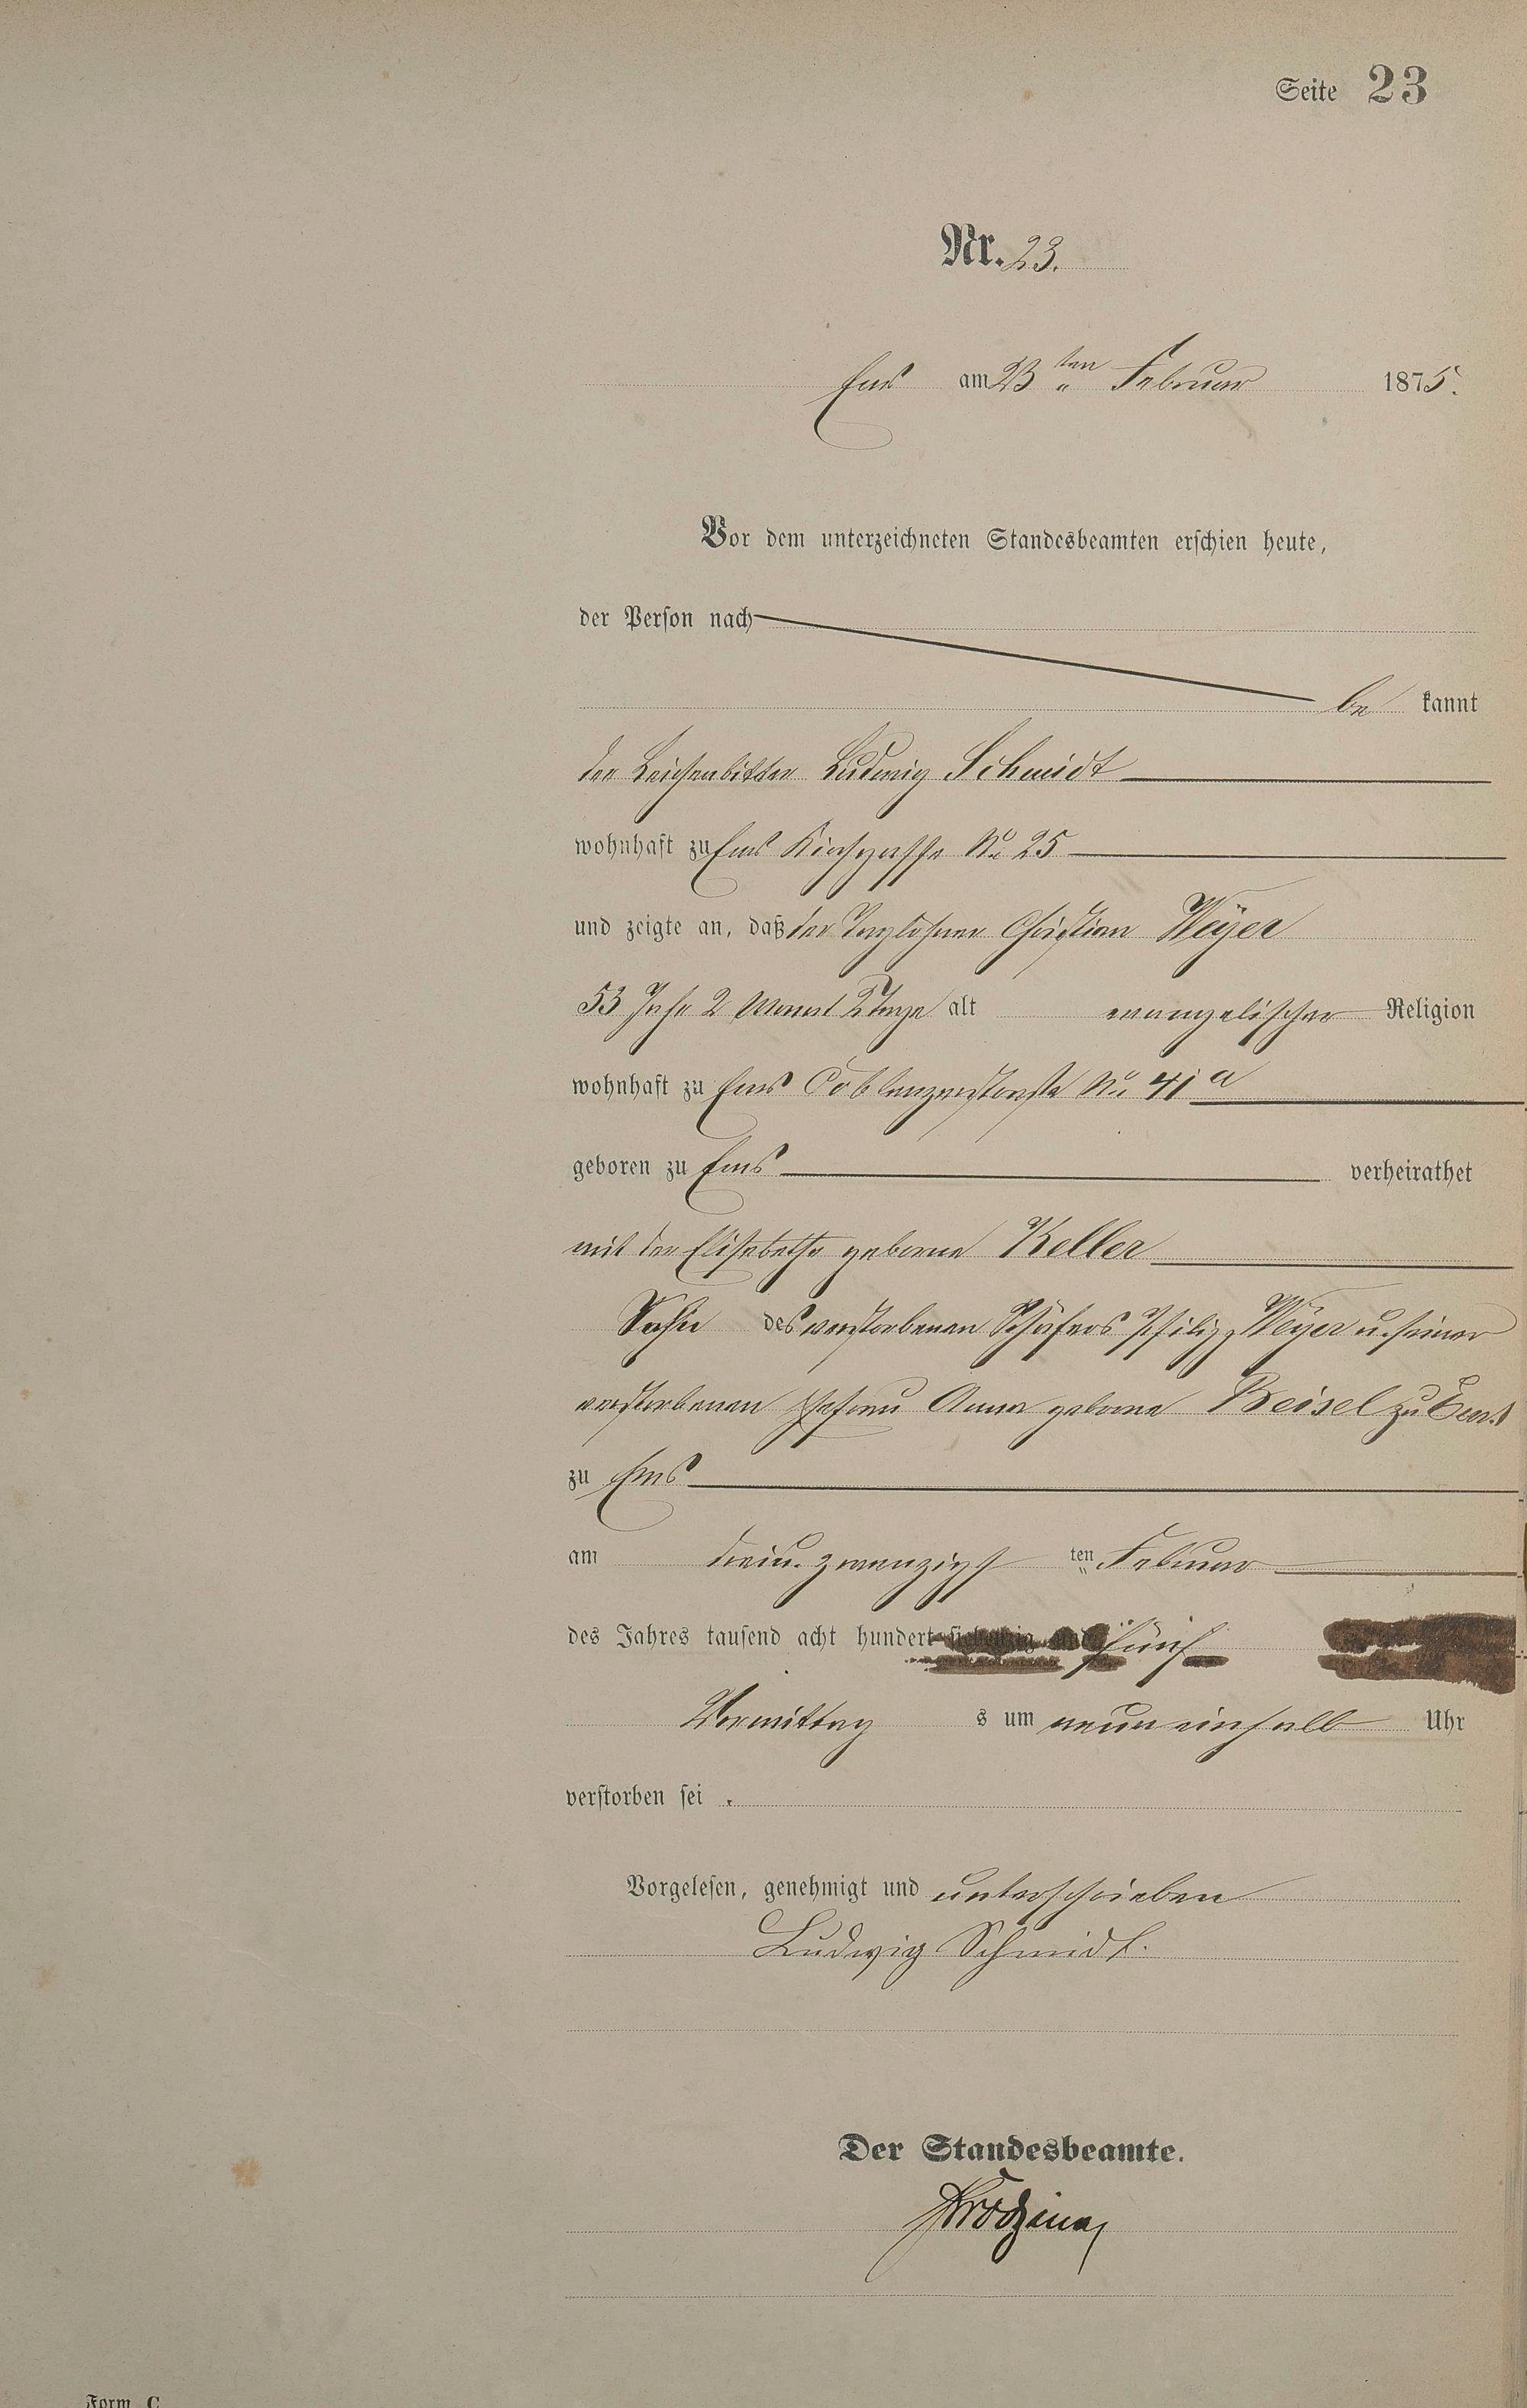 Seite 23
Nr. 23.
Ems am 23ten Februar 1875.
Vor dem unterzeichneten Standesbeamten erschien heute,
der Person nach
be kannt
der Leichenbitter Ludwig Schmidt
wohnhaft zu Ems Kirchgasse No 25
und zeigte an, daß der Taglöhner Christian Weyer
53 Jahr 2 Monat 2 Tage alt evangelischer Religion
wohnhaft zu Ems Coblenzerstraße No 41a
geboren zu Ems verheirathet
mit der Elisabethe geborne Keller
Sohn des verstorbenen Schäfers Philipp Weyer u. seiner
verstorbenen Ehefrau Anna geborne Beisel zu Ems
zu Ems
am dreiu. zwanzigs ten Februar
des Jahres tausend acht hundert siebenzig und fünf
Vormittag s um neun einhalb Uhr
verstorben sei .
Vorgelesen, genehmigt und unterschrieben
Ludwig Schmidt.
Der Standesbeamte.
Form. C